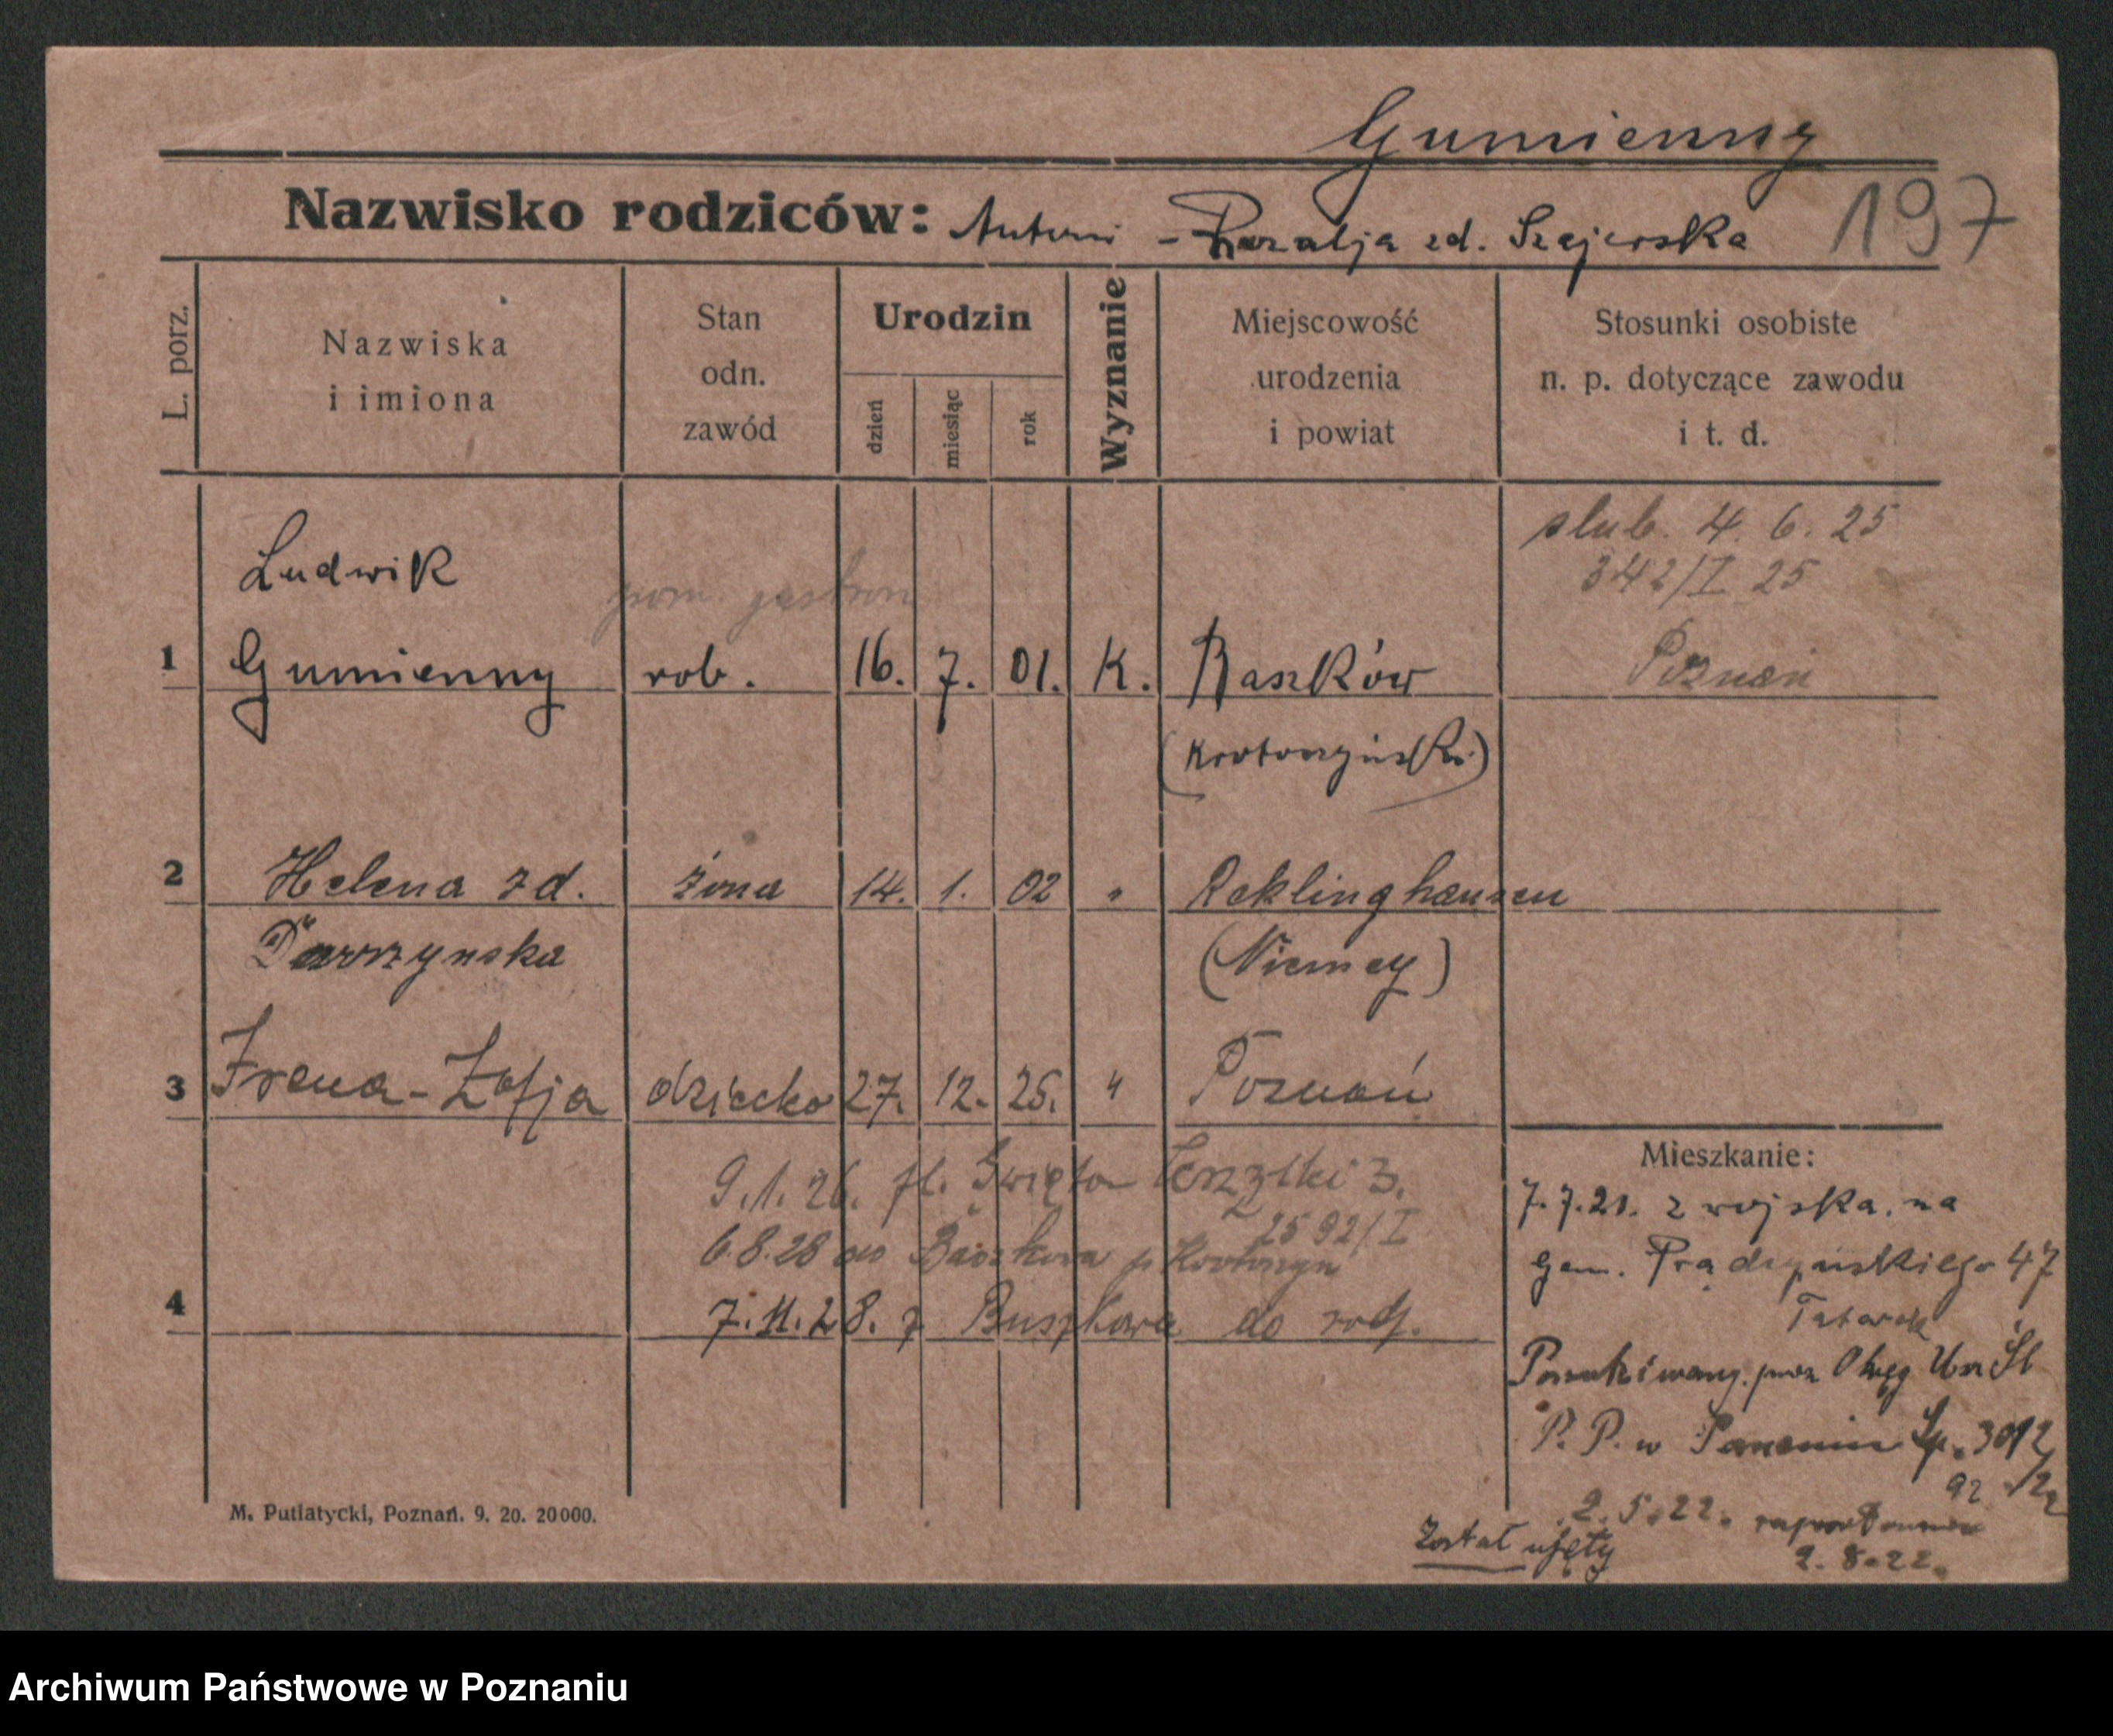 Gumienny
Nazwisko rodziców: Antoni - Rozalja zd. Szajerska 197
L. porz.
Nazwiska
i imiona
Stan
odn.
zawód
Urodzin
dzień
miesiąc
rok
Wyznanie
Miejscowość
urodzenia
i powiat
Stosunki osobiste
n. p. dotyczące zawodu
i t. d.
slub. 4. 6. 25
342/I 25
Poznań
Ludwik
1 Gumienny rob. 16. 7. 01. K. Baszków
(Krotoszyński)
2 Helena zd. żona 14. 1. 02 " Reklinghausen
(Niemcy)
3 Irena-Zofja dziecko 27. 12. 25. " Poznań
9.1.26. fl. Święto 3.
2592/I
6.8.28 do Baszkowa p Krotoszyn
4 7.11.28. z Buszkowa do rodz.
Mieszkanie:
7.7.21. z wojska. na
gen. Prądzyńskiego 47
Tatarek
Poszukiwany. przez Okręg Urz Śl
P. P. w 3012
92 /22
2.5.22.
Został ujęty
2.8.22.
M. Putiatycki, Poznań. 9. 20. 20000.
Archiwum Państwowe w Poznaniu